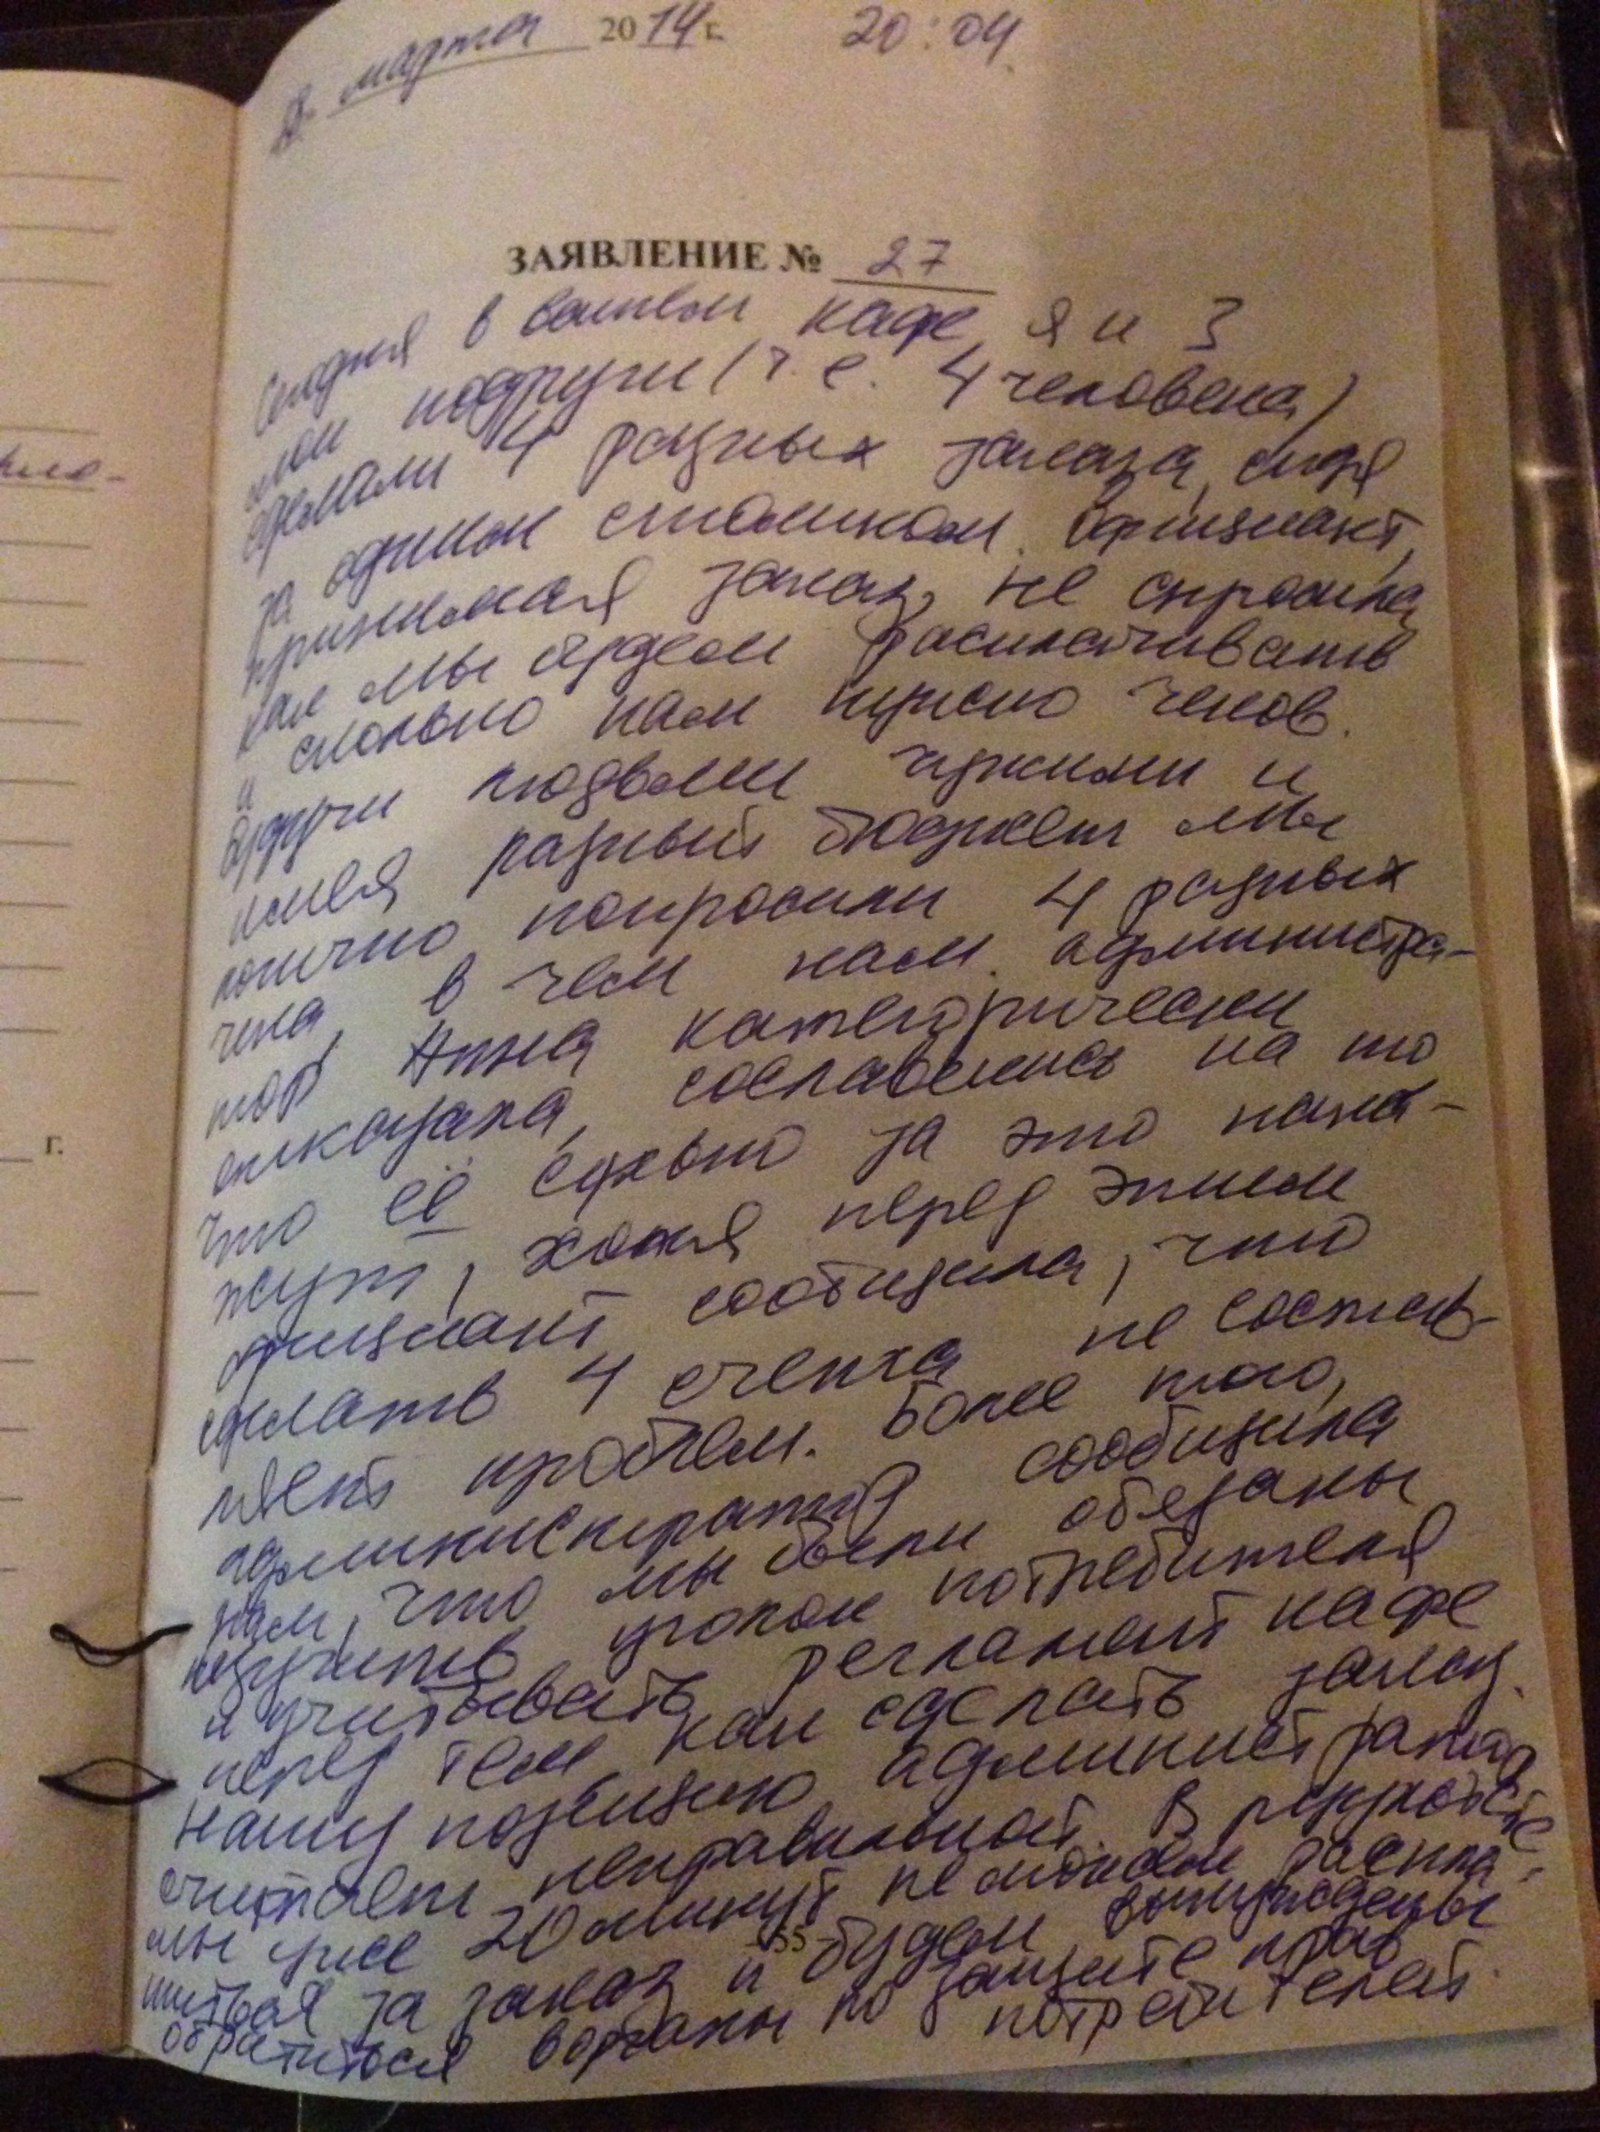 марта 2014 г. 20:04
ЗАЯВЛЕНИЕ № 27
Сегодня в вашем кафе я и 3
мои подруги (т.е. 4 человека)
сделали 4 разных заказа, сидя
за одним столиком. Официант,
принимая заказ, не спросила
как мы будем расплачивать
и сколько нам нужно чеков.
Будучи людьми чужими и
имея разный бюджет мы
логично попросили 4 разных
чека, в чем нам администра-
тор Анна категорически
отказала, сославшись на то
что её сухо за это нака-
жут, хотя перед этим
официант сообщила, что
сделать 4 счета не состав-
ляет проблем. Более того,
администратор сообщила
нам, что мы были обязаны
изучить уголок потребителя
и учитывать регламент кафе
перед тем как сделать заказ.
Нашу позицию администратор
считает неправильной. В результате
мы уже 20 минут не можем распла-
титься за заказ и будем вынуждены
55
обратиться в органы по защите прав
потребителей.
кло-
г.